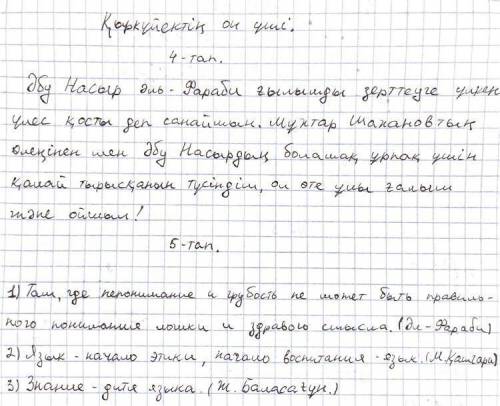 Қыркүйектің он үші.
4-тап.
Әбу Насыр әль-Фараби ғылымды зерттеуге үлкен
үлес қосты деп санаймын. Мұхтар Шахановтың
өлеңінен мен Әбу Насырдың болашақ ұрпақ үшін
қалай тырысқанын түсіндім, ол өте ұлы ғалым
және ойшыл!
5-тап.
1) Там, где непонимание и грубость не может быть правиль-
ного понимания логики и здравого смысла. (Әл-Фараби)
2) Язык - начало этики, начало воспитания - язык. (М. Қашғари)
3) Знание - дитя языка. (Ж. Баласағұн.)